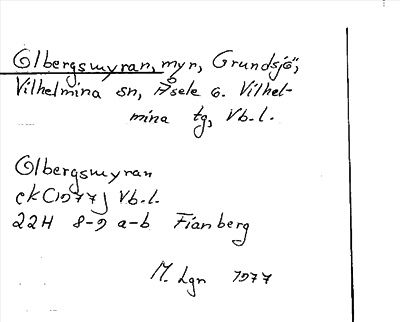 Olbergsmyran, myr, Grundsjö,
Vilhelmina sn, Åsele o. Vilhel-
mina tg, Vb.l.
Olbergsmyran
ek (1977) Vb.l.
22H 8-9 a-b Fianberg
M. Lgn 1977